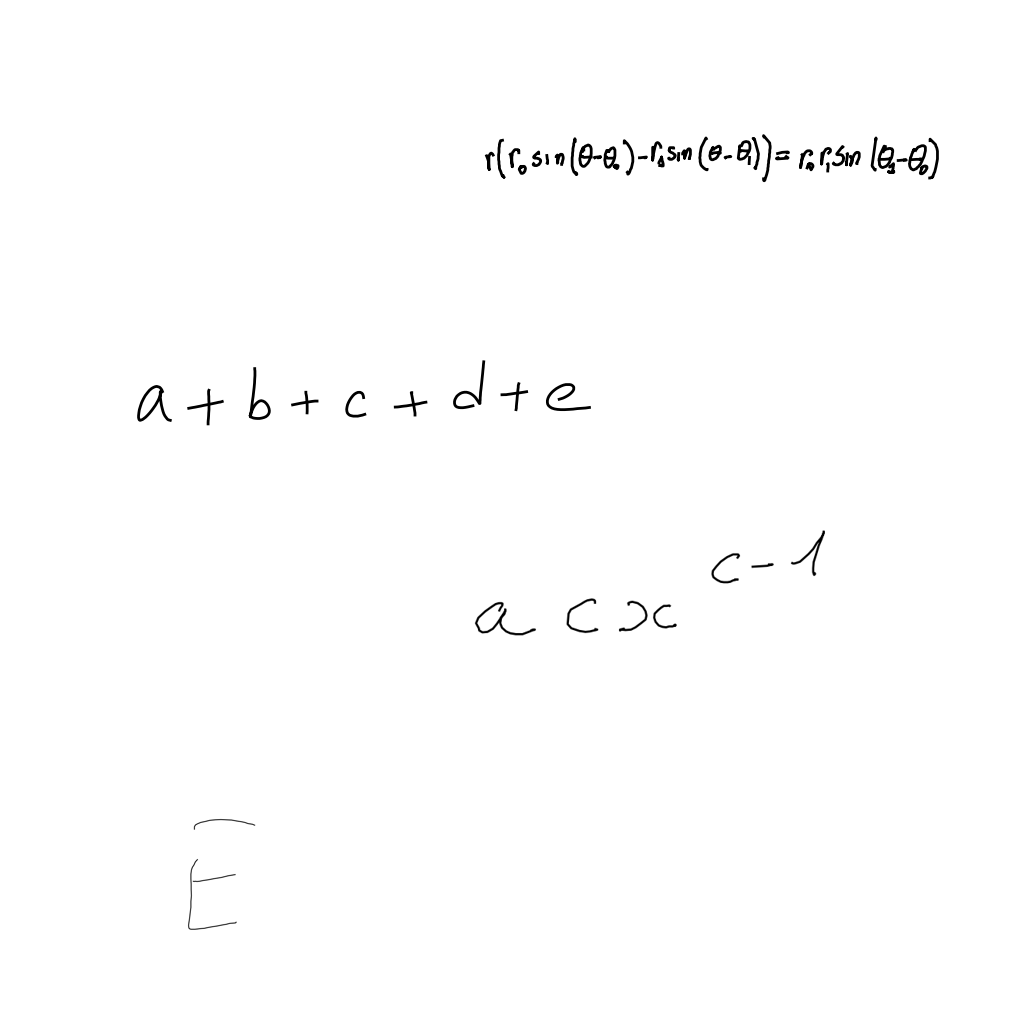 r(r₀ sin(θ-θ₀)-r₁ sin(θ-θ₁))= r₀ r₁ sin(θ₁-θ₀)
a+b+c+d+e
acx^{c-1}
E